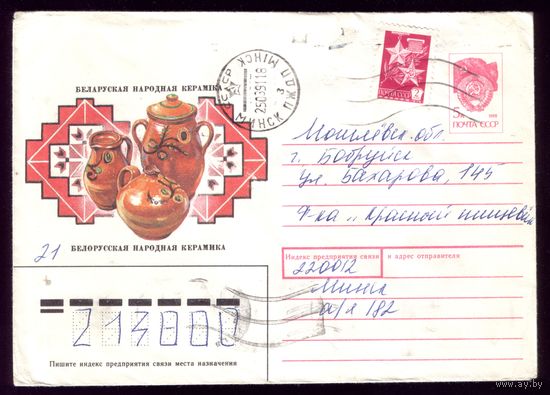 БЕЛАРУСКАЯ НАРОДНАЯ КЕРАМІКА
БЕЛОРУССКАЯ НАРОДНАЯ КЕРАМИКА
МІНСК ПЖДП
МИНСК 3
250391 18
ПОЧТА СССР 2
5к
1988
ПОЧТА СССР
Могилёвск. обл.
г. Бобруйск
ул. Бахарова, 145
Ф-ка "Красный пищевик
21
Индекс предприятия связи и адрес отправителя
220012
Минск
а/я 182
213800
Пишите индекс предприятия связи места назначения
www.ay.by